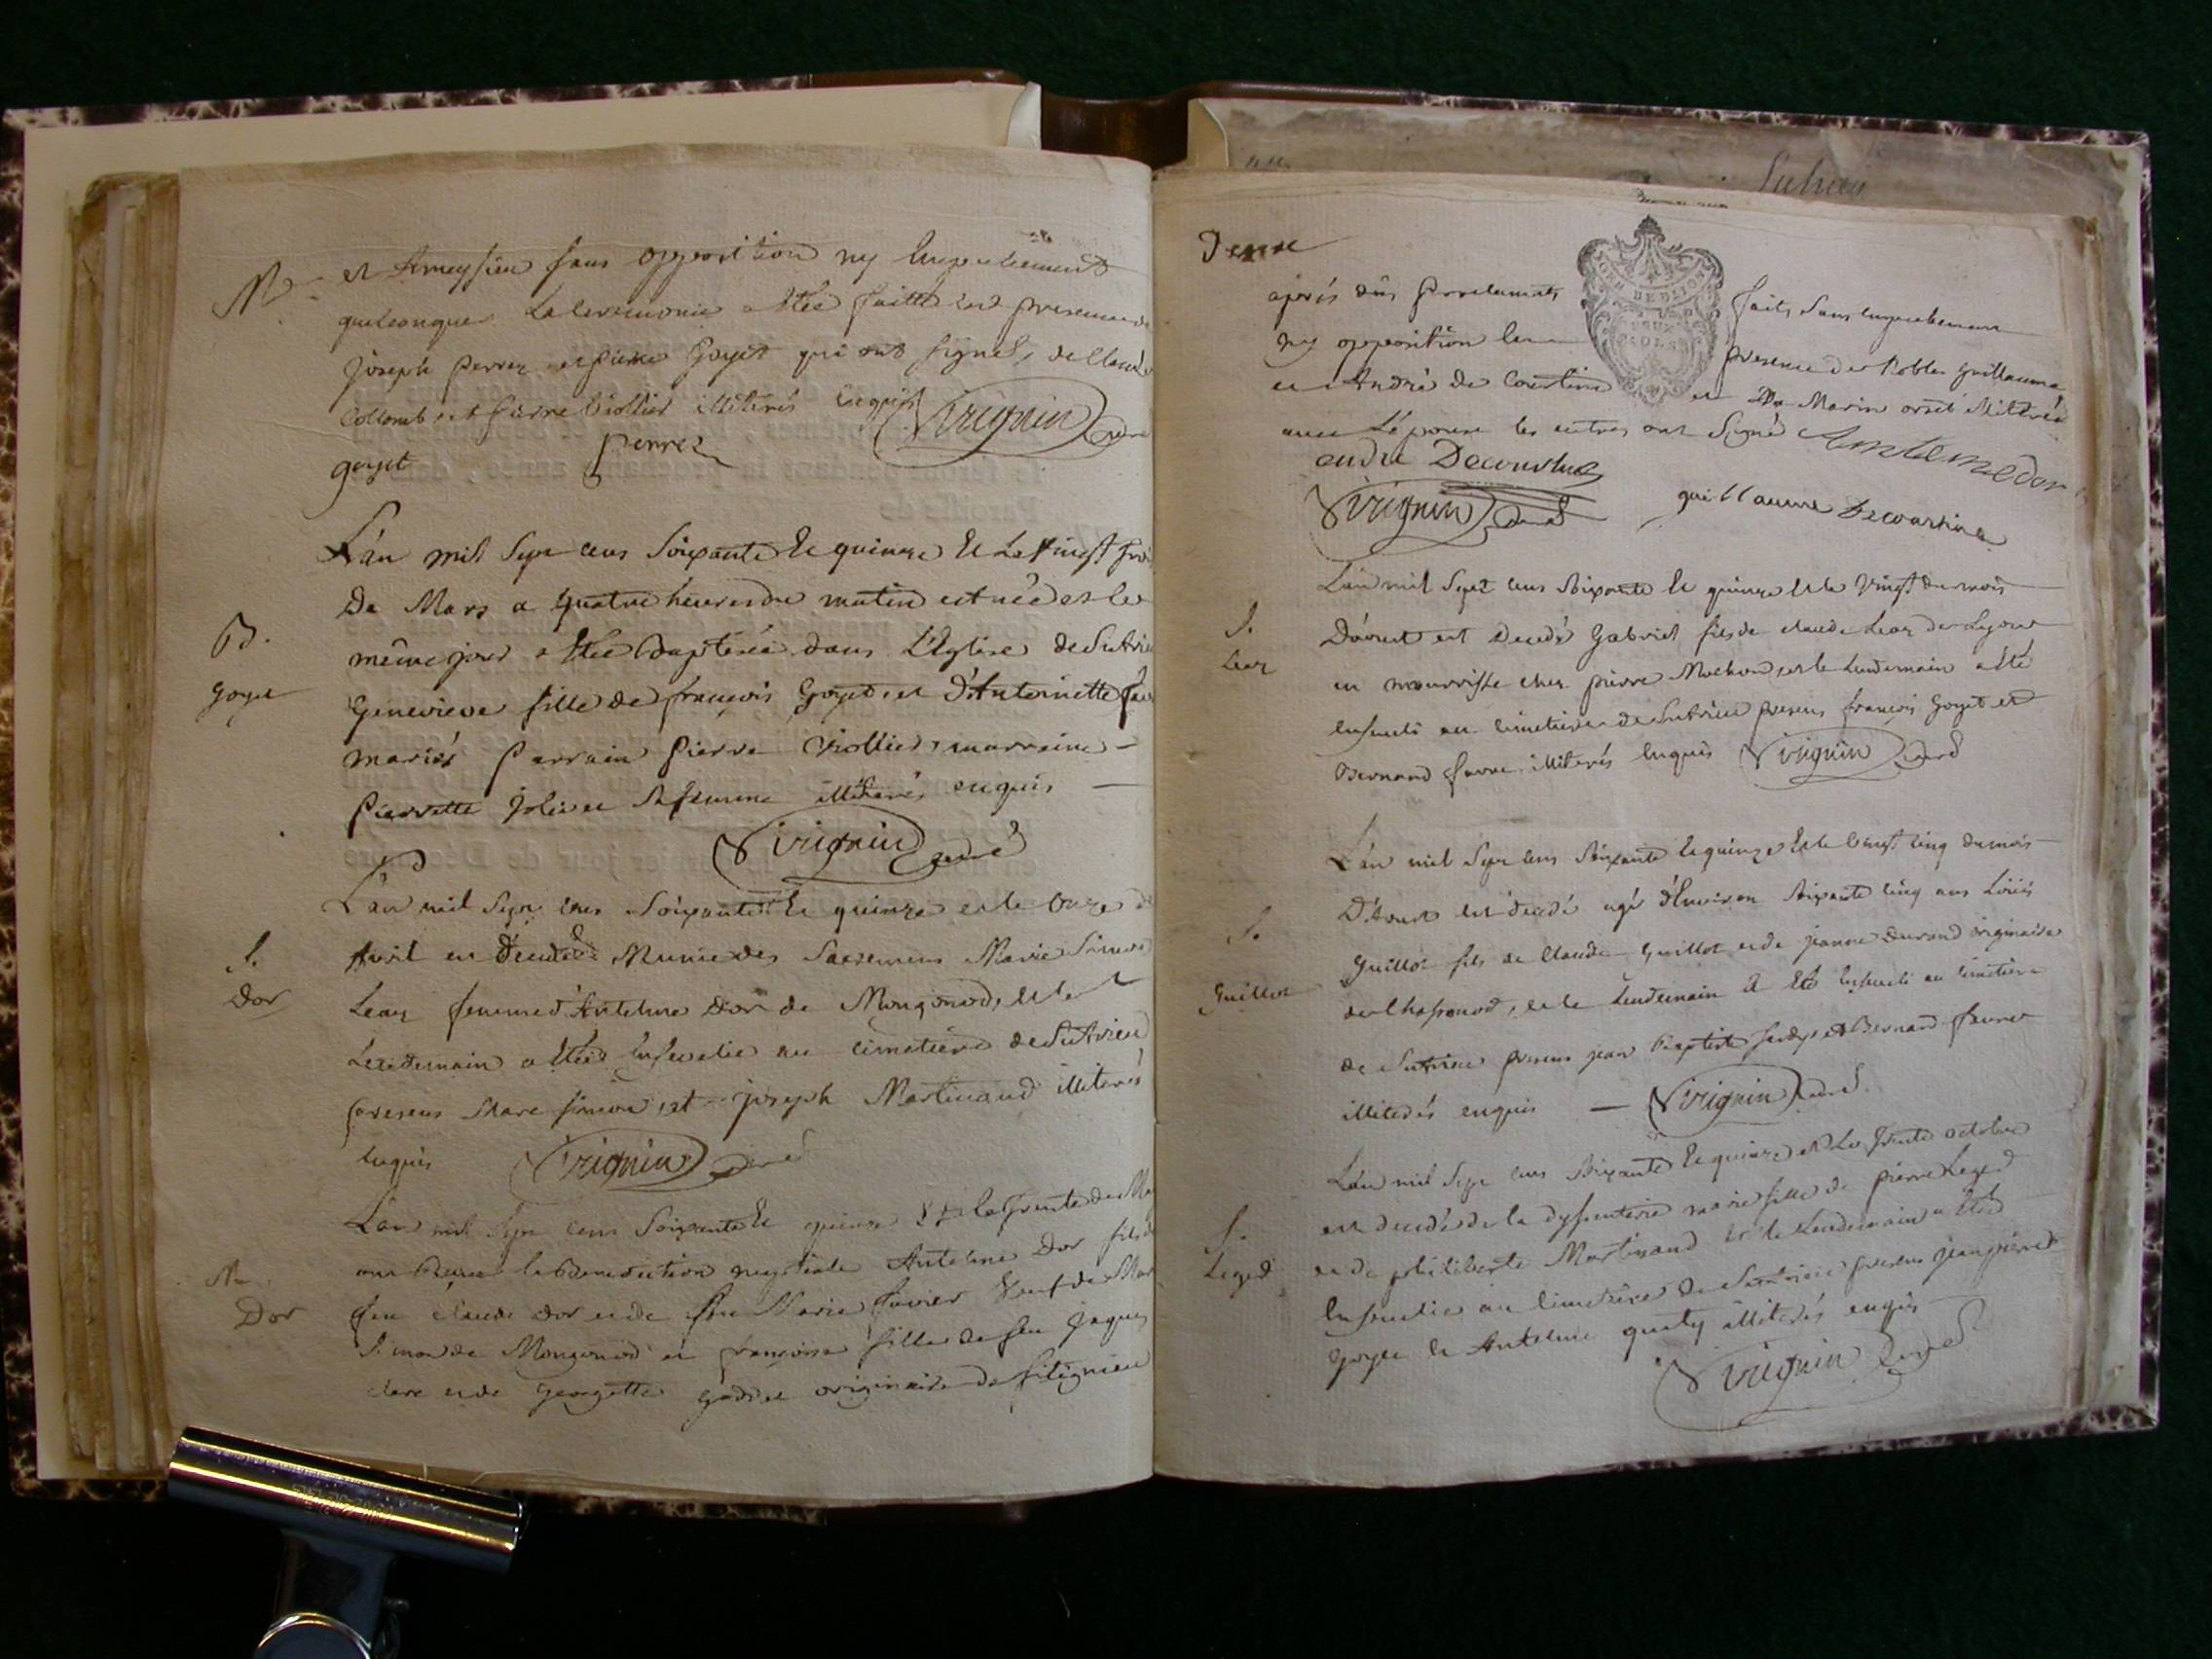 M.
et Ameyzieu sans opposition ny Empechement
quelconque La Ceremonie a Eté faitte en presence de
joseph perrez et pierre Goyet qui ont signés, de Claude
Collomb, et pierre Viollier illiterés enquis Virignin Curé
goyet perrez
L'an mil Sept cens Soixante Et quinze Et Le vingt
De Mars a quatre heures du matin est née et le
même jour a Eté Baptisée dans L'Eglise de Sutrieu
B.
Goyet
Genevieve fille de françois Goyet, et D'Antoinette
mariés Parrain Pierre Viollier, marraine
Pierrette sa femme illiterés enquis
Virignin Curé
L'an mil Sept cens Soixante Et quinze et le onze
S.
Dor
Avril est Decedée Munie des Sacremens Marie Simon
femme d'Antelme Dor de Mongonod, et le
Lendemain a Eté Ensevelie au cimetiere de Sutrieu
presens Marc simon, et joseph Martinand illiterés
Enquis Virignin Curé
L'an mil Sept cens Soixante Et quinze Et le trente de
M.
Dor
ont Reçu la Benediction nuptiale Antelme Dor fils de
feu Claude Dor et de feu Marie Veuf de
Simon de Mongonod et françoise fille de feu jaques
et de Georgette originaire de fitignieu
Sutrieu
après dûs Proclamats faits Sans empechement
ny opposition En presence des Nobles guillaume
et André de Courtine et de Marin illiteré
avec L'épouse les autres ont Signé Antelmedor
andré Decourtine
Virignin Curé guillaume Decourtine
L'an mil Sept cens Soixante Et quinze et le vingt du mois
S.
D'Aoust est Decedé Gabriel fils de claude de Lyon
en nourrisse chez pierre Mochon, et le Lendemain a Eté
Enseveli au Cimetiere de Sutrieu presens françois Goyet et
Bernard favre illiterés Enquis Virignin Curé
L'an mil Sept cens Soixante Et quinze Et le vingt cinq du mois
D'Aoust est decedé agé d'Environ Soixante cinq ans Loüis
S.
Guillot
Guillot fils de Claude Guillot et de jeanne durand originaire
de Chassonod, et le Lendemain a Eté Enseveli au Cimetiere
de Sutrieu presens jean Baptiste et Bernard favre
illiterés enquis Virignin Curé
L'an mil Sept cens Soixante Et quinze et Le trente octobre
S.
Leged
est decedée de la dyssenterie marie fille de pierre Leged
et de philiberte Martinand et le Lendemain a Eté
Ensevelie au Cimetiere de Sutrieu presens jean pierre
goyet et Antelme illiterés enquis
Virignin Curé